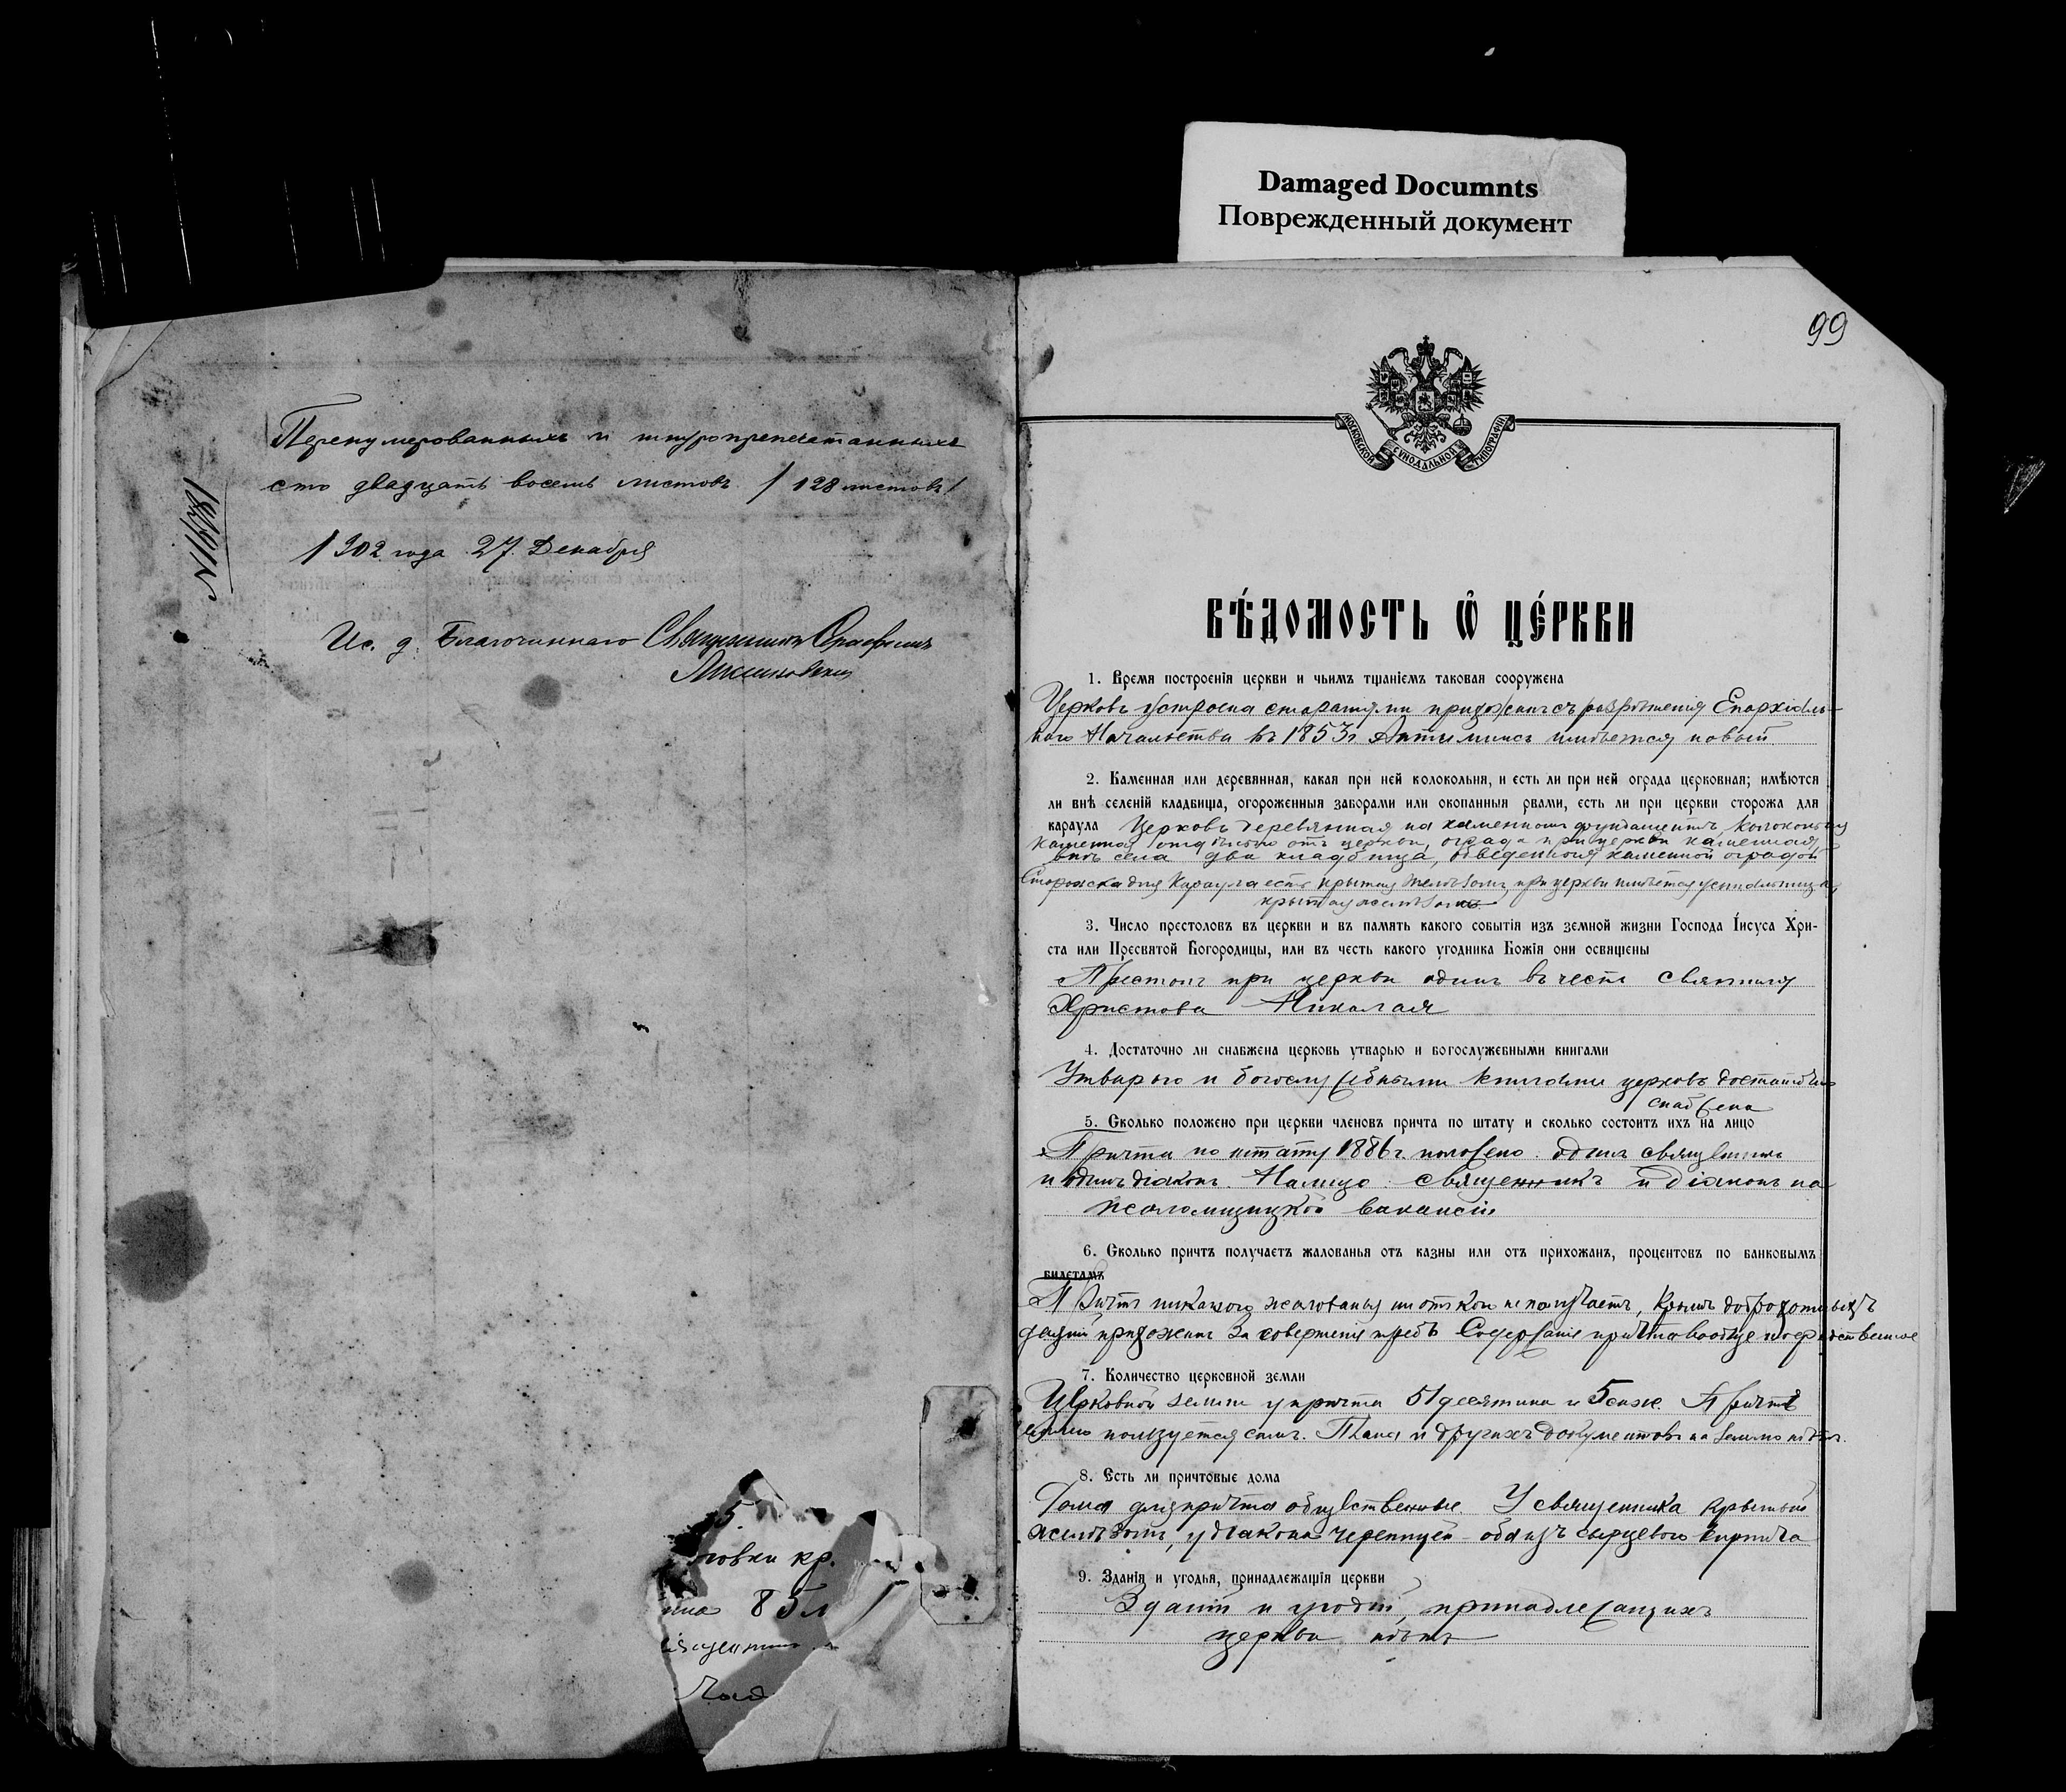 Damaged Documnts
Поврежденный документ
99
Перенумерованныхъ и шнуропрепечатанныхъ
сто двадцать восемь листовъ / 128 листовъ /
1902 года 27. Декабря
Ис. д. Благочиннаго Священникъ
5.
говки кр.
85
МОСКОВСКОЙ СѴНОДАЛЬНОЙ ТИПОГРАФІИ
ВѢДОМОСТЬ Ѡ ЦЕРКВИ
1. Время построенія церкви и чьимъ тщаніемъ таковая сооружена
Церковь устроена стараніями прихожанъ съ разрѣшенія Епархіаль-
наго Начальства въ 1853 г. Антиминсъ имѣется новый
2. Каменная или деревянная, какая при ней колокольня, и есть ли при ней ограда церковная; имѣются
ли внѣ селеній кладбища, огороженныя заборами или окопанныя рвами, есть ли при церкви сторожа для
караула Церковь деревянная на каменномъ фундаментѣ, колокольня
каменная отдѣльно отъ церкви, ограда при церкви каменная,
внѣ села два кладбища, обведенныя каменной оградой
Сторожка для караула есть крытая желѣзомъ, при церкви имѣется
крытая желѣзомъ
3. Число престоловъ въ церкви и въ память какого событія изъ земной жизни Господа Іисуса Хри-
ста или Пресвятой Богородицы, или въ честь какого угодника Божія они освящены
Престолъ при церкви одинъ въ честь Святителя
Христова Николая
4. Достаточно ли снабжена церковь утварью и богослужебными книгами
Утварью и богослужебными книгами церковь достаточно
снабжена
5. Сколько положено при церкви членовъ причта по штату и сколько состоитъ ихъ на лицо
Причта по штату 1886 г. положено: одинъ священникъ
и одинъ діаконъ. Налицо: священникъ и діаконъ на
псаломщицкой вакансіи
6. Сколько причтъ получаетъ жалованья отъ казны или отъ прихожанъ, процентовъ по банковымъ
билетамъ
Причтъ никакого жалованья ни откого не получаетъ, кромѣ доброхотныхъ
даяній прихожанъ за совершеніе требъ. Содержаніе причта вообще посредственное
7. Количество церковной земли
Церковной земли у причта 51 десятина и 5 саж. Причтъ
землею пользуется самъ. Плана и другихъ документовъ на землю нѣтъ.
8. Есть ли причтовые дома
Дома для причта общественные. У священника крытый
желѣзомъ, у діакона черепицей – оба изъ сырцевого кирпича
9. Зданія и угодья, принадлежащія церкви
Зданій и угодій, принадлежащихъ
церкви нѣтъ